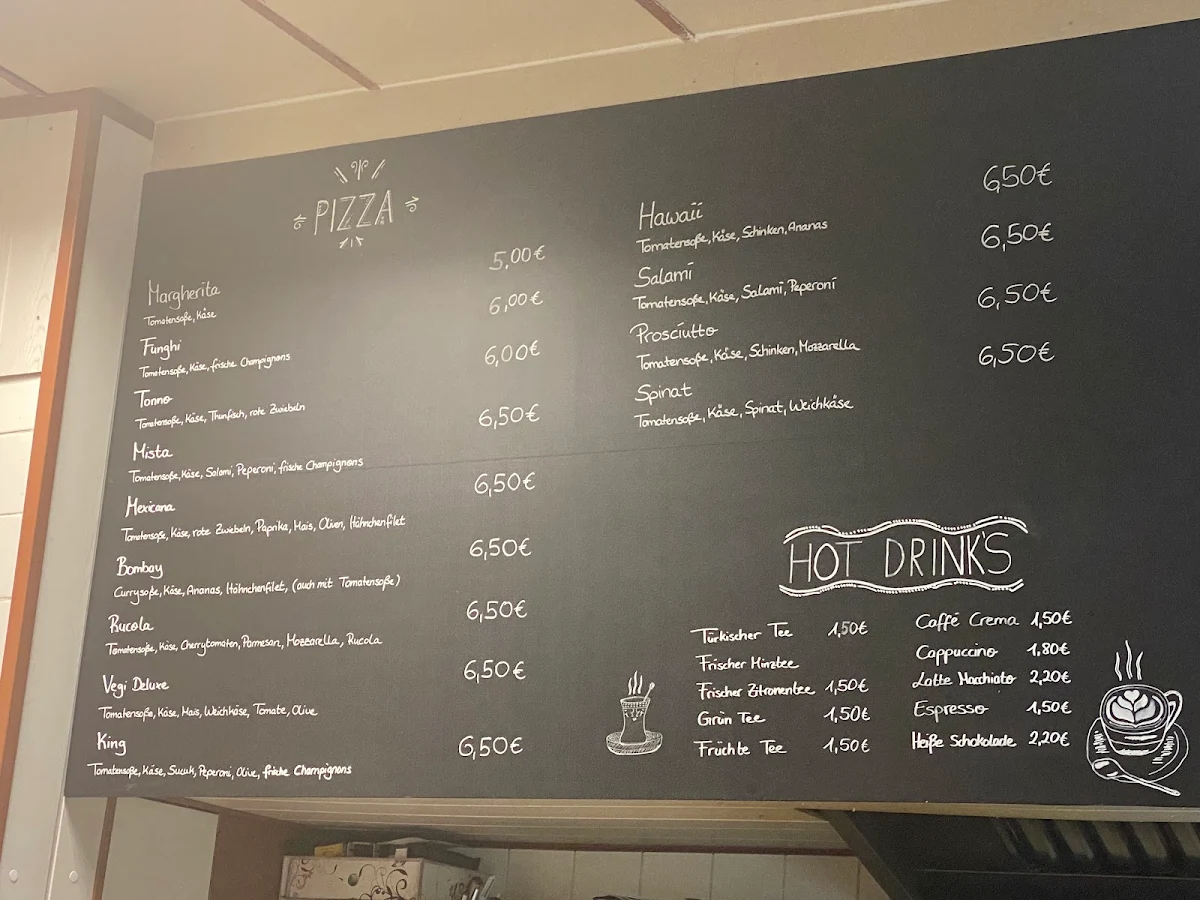 PIZZA
Margherita 5,00€
Tomatensoße, Käse
Funghi 6,00€
Tomatensoße, Käse, frische Champignons
Tonno 6,00€
Tomatensoße, Käse, Thunfisch, rote Zwiebeln
Mista 6,50€
Tomatensoße, Käse, Salami, Peperoni, frische Champignons
Mexicana 6,50€
Tomatensoße, Käse, rote Zwiebeln, Paprika, Mais, Oliven, Hähnchenfilet
Bombay 6,50€
Currysoße, Käse, Ananas, Hähnchenfilet, (auch mit Tomatensoße)
Rucola 6,50€
Tomatensoße, Käse, Cherrytomaten, Parmesan, Mozzarella, Rucola
Vegi Deluxe 6,50€
Tomatensoße, Käse, Mais, Weichkäse, Tomate, Olive
King 6,50€
Tomatensoße, Käse, Sucuk, Peperoni, Olive, frische Champignons
Hawaii 6,50€
Tomatensoße, Käse, Schinken, Ananas
Salami 6,50€
Tomatensoße, Käse, Salami, Peperoni
Prosciutto 6,50€
Tomatensoße, Käse, Schinken, Mozzarella
Spinat 6,50€
Tomatensoße, Käse, Spinat, Weichkäse
HOT DRINK'S
Türkischer Tee 1,50€
Frischer Minztee
Frischer Zitronentee 1,50€
Grün Tee 1,50€
Früchte Tee 1,50€
Caffé Crema 1,50€
Cappuccino 1,80€
Latte Macchiato 2,20€
Espresso 1,50€
Heiße Schokolade 2,20€